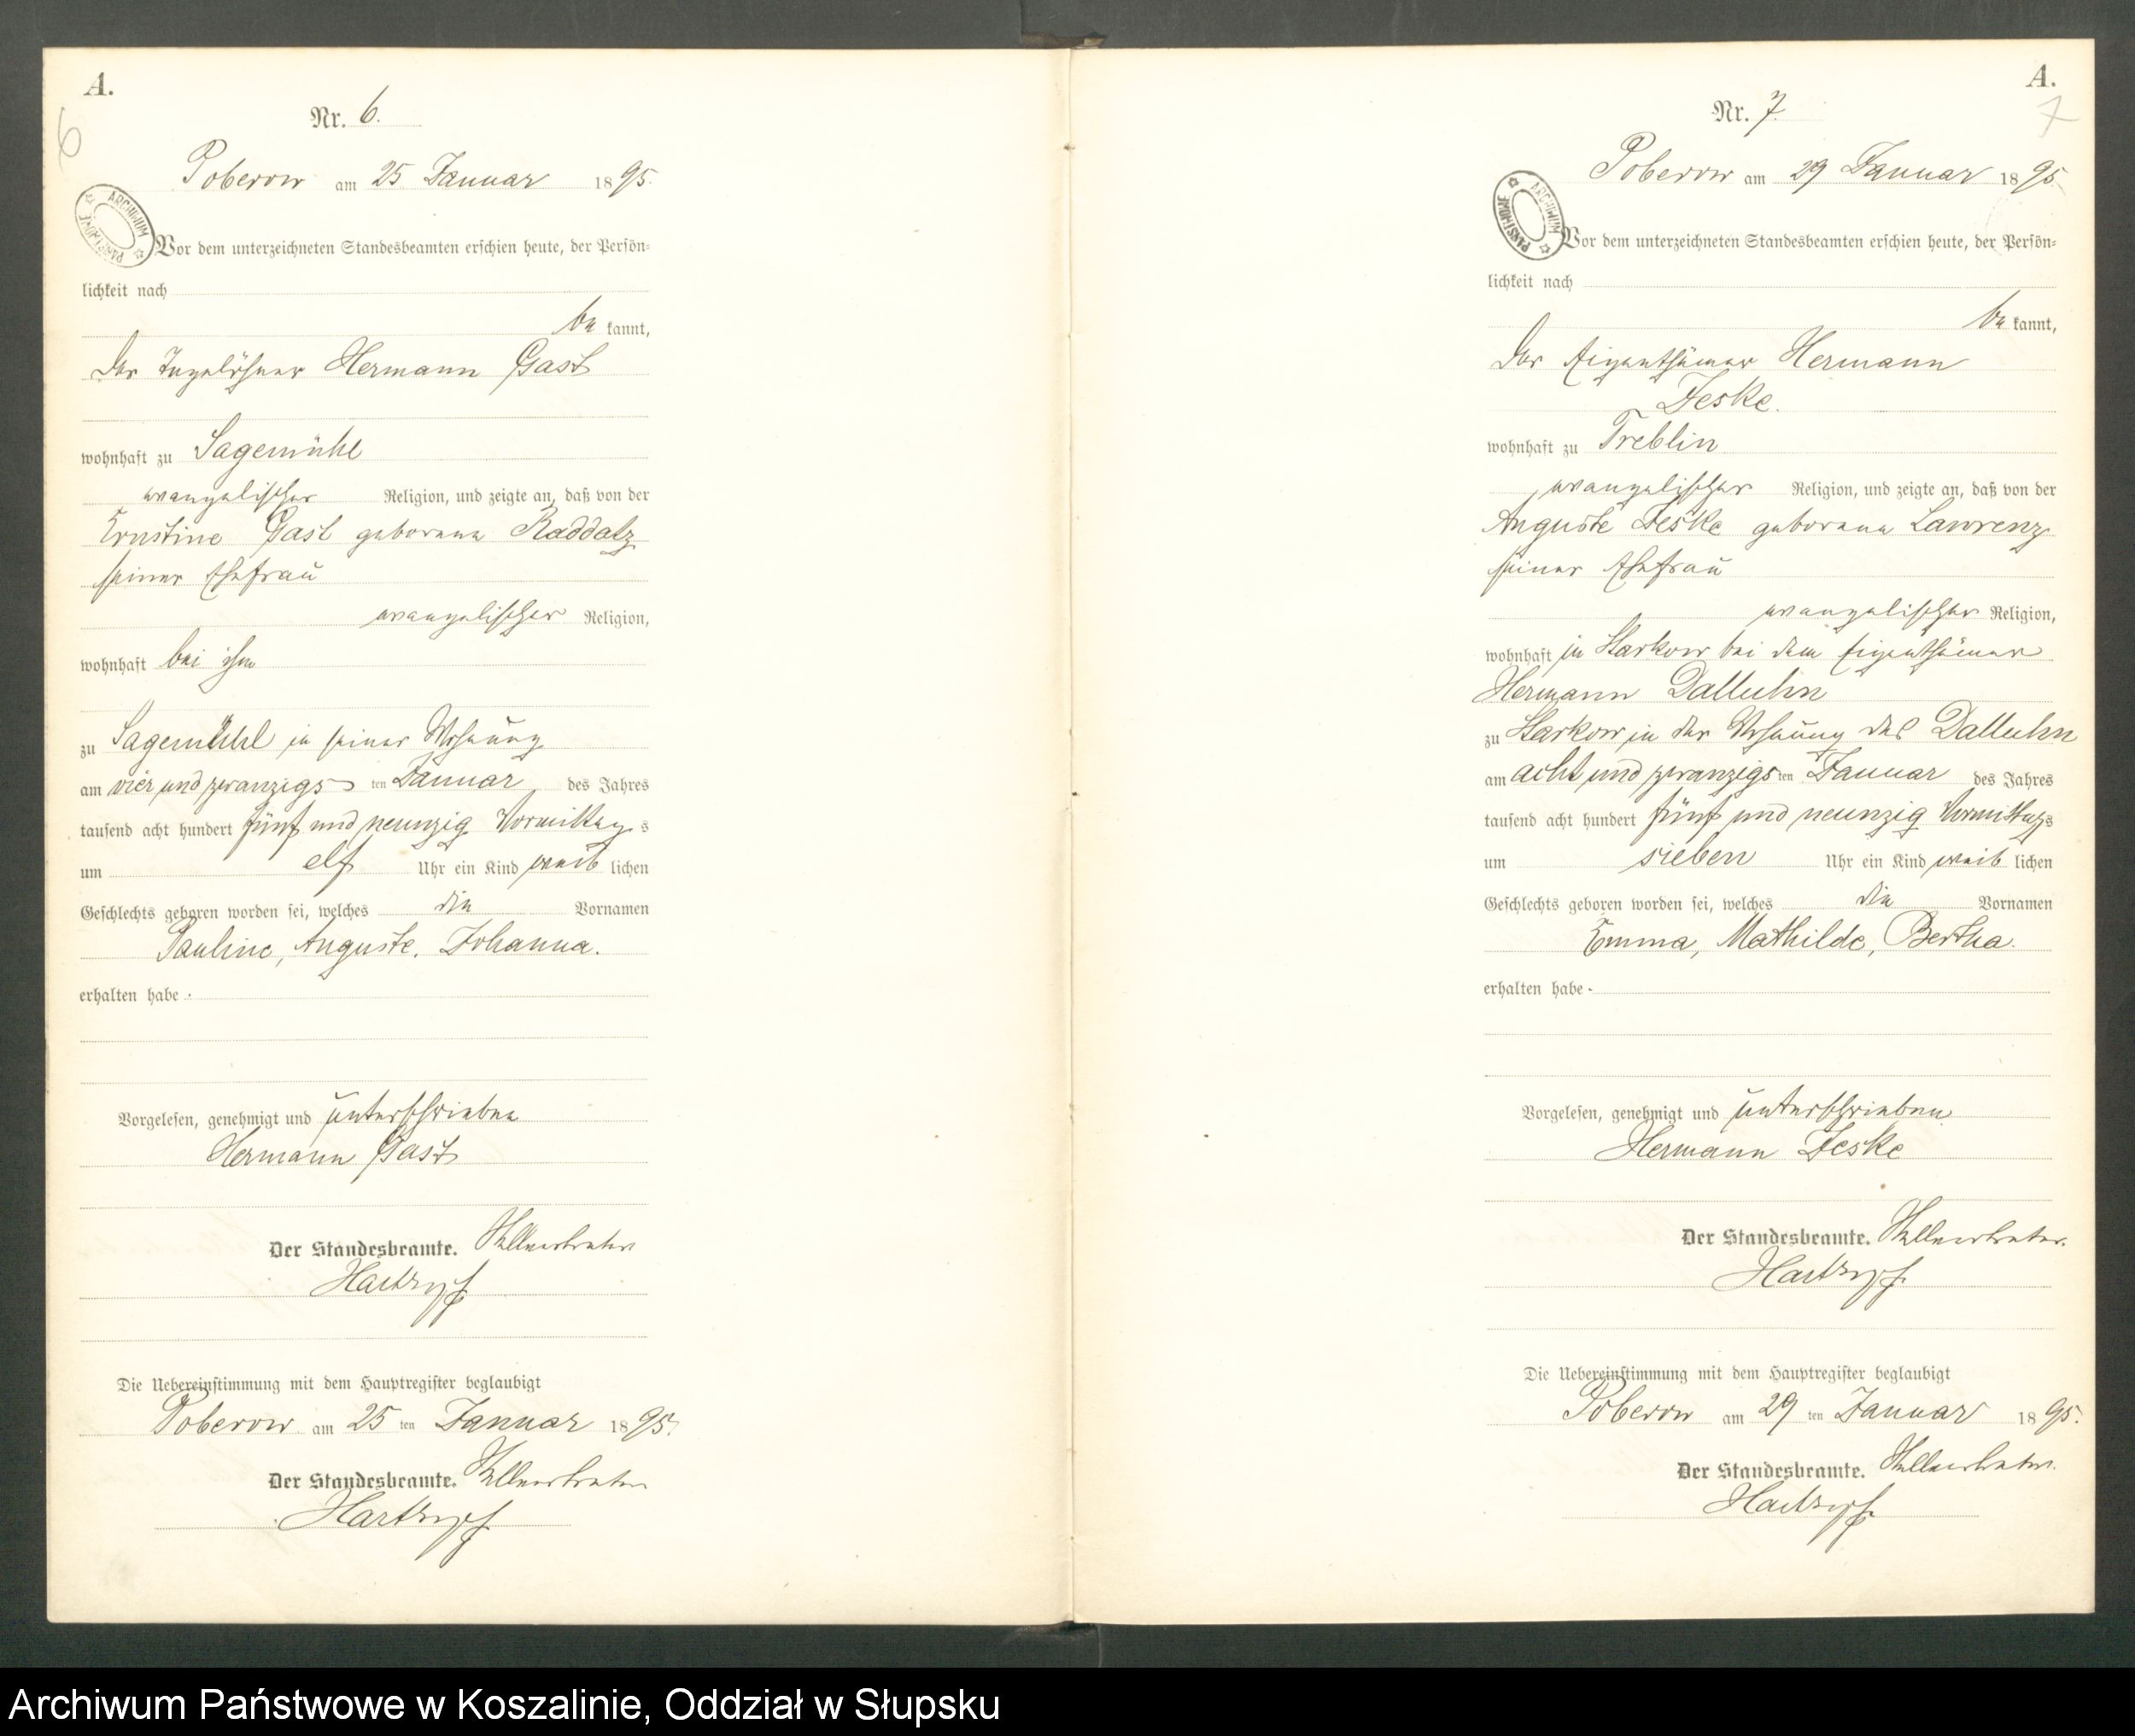 A.
6
Nr. 6.
Poberow am 25 Januar 1895.
ARCHIWUM PAŃSTWOWE
Vor dem unterzeichneten Standesbeamten erschien heute, der Persön-
lichkeit nach
be kannt,
der Tagelöhner Hermann Gast
wohnhaft zu Sagemühl
evangelischer Religion, und zeigte an, daß von der
Ernstine Gast geborene Raddatz
seiner Ehefrau
evangelischer Religion,
wohnhaft bei ihm
zu Sagemühl in seiner Wohnung
am vier und zwanzigs ten Januar des Jahres
tausend acht hundert fünf und neunzig Vormittag s
um elf Uhr ein Kind weib lichen
Geschlechts geboren worden sei, welches die Vornamen
Pauline, Auguste, Johanna.
erhalten habe.
Vorgelesen, genehmigt und unterschrieben
Hermann Gast
Der Standesbeamte. Stellvertreter
Die Uebereinstimmung mit dem Hauptregister beglaubigt
Poberow am 25 ten Januar 1895.
Der Standesbeamte. Stellvertreter
A.
7
Nr. 7
Poberow am 29 Januar 1895
ARCHIWUM PAŃSTWOWE
Vor dem unterzeichneten Standesbeamten erschien heute, der Persön-
lichkeit nach
be kannt,
der Eigenthümer Hermann
Jeske.
wohnhaft zu Treblin
evangelischer Religion, und zeigte an, daß von der
Auguste Jeske geborene Lawrenz
seiner Ehefrau
evangelischer Religion,
wohnhaft in Starkow bei dem Eigenthümer
Hermann Dalluhn
zu Starkow in der Wohnung des Dalluhn
am acht und zwanzigs ten Januar des Jahres
tausend acht hundert fünf und neunzig Vormittags
um sieben Uhr ein Kind weib lichen
Geschlechts geboren worden sei, welches die Vornamen
Emma, Mathilde, Bertha.
erhalten habe.
Vorgelesen, genehmigt und unterschrieben
Hermann Jeske
Der Standesbeamte. Stellvertreter.
Die Uebereinstimmung mit dem Hauptregister beglaubigt
Poberow am 29 ten Januar 1895.
Der Standesbeamte. Stellvertreter.
Archiwum Państwowe w Koszalinie, Oddział w Słupsku